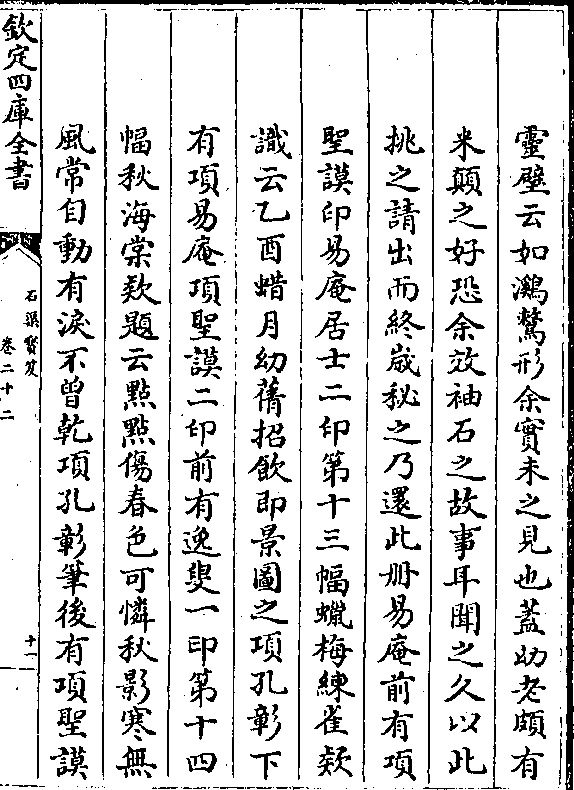 靈壁云如鸂鶩形余實未之見也蓋幼老頗有
米顛之好恐余效袖石之故事耳聞之久以此
挑之請出而終歲秘之乃還此冊易庵前有項
聖謨印易庵居士二印第十三幅蠟梅練雀款
識云乙酉蜡月幼蒨招飲即景圖之項孔彰下
有項易庵項聖謨二印前有逸叟一印第十四
幅秋海棠款題云點點傷春色可憐秋影寒無
風常自動有淚不曾乾項孔彰筆後有項聖謨
欽定四庫全書
石渠寳笈
卷二十二
十一